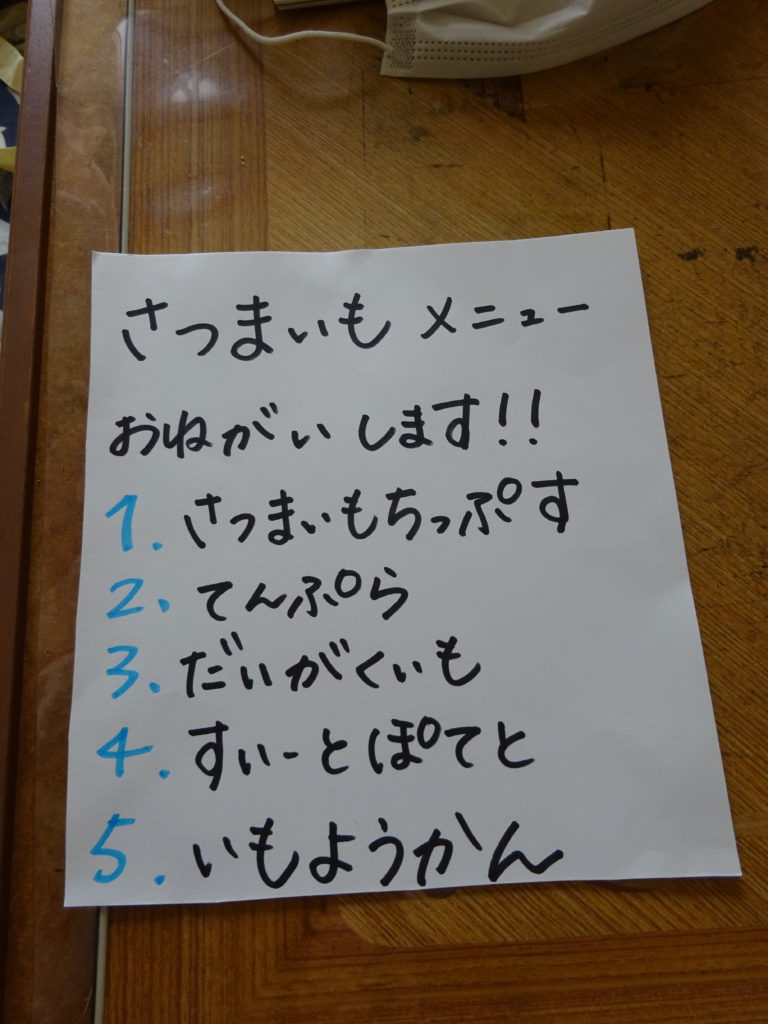 さつまいも メニュー
おねがいします!!
1. さつまいもちっぷす
2. てんぷら
3. だいがくいも
4. すいーとぽてと
5. いもようかん